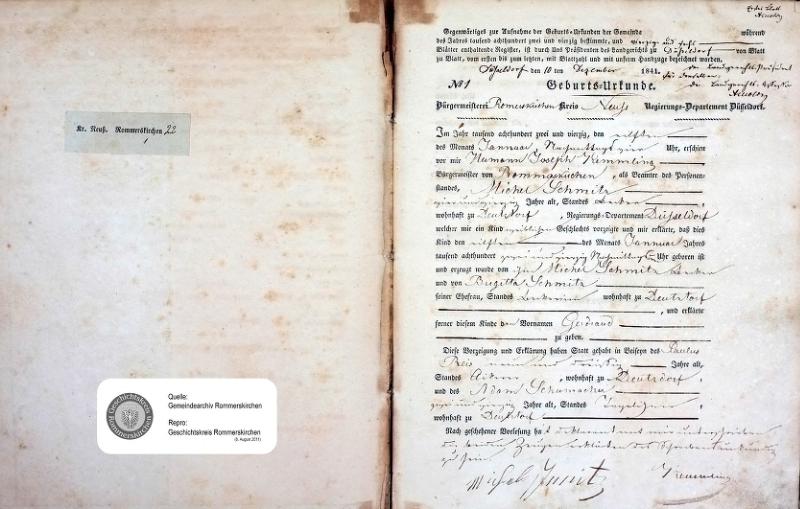 Kr. Neuß. Rommerskirchen 22
1
Geschichtskreis Rommerskirchen
Quelle:
Gemeindearchiv Rommerskirchen
Repro:
Geschichtskreis Rommerskirchen
(5. August 2011)
Erstes Blatt
Gegenwärtiges zur Aufnahme der Geburts-Urkunden der Gemeinde während
des Jahres tausend achthundert zwei und vierzig bestimmte, und vierzig und sechs
Blätter enthaltende Register, ist durch Uns Präsidenten des Landgerichts zu Düsseldorf von Blatt
zu Blatt, vom ersten bis zum letzten, mit Blattzahl und mit unserm Handzuge bezeichnet worden.
Düsseldorf den 10 ten Dezember 1841.
No 1 Geburts-Urkunde.
Bürgermeisterei Rommerskirchen Kreis Neuss Regierungs-Departement Düsseldorf.
Im Jahr tausend achthundert zwei und vierzig, den eilften
des Monats Januar, Nachmittags vier Uhr, erschien
vor mir Hermann Joseph Kemmling
Bürgermeister von Rommerskirchen, als Beamter des Personen-
standes, Michel Schmitz
vier und vierzig Jahre alt, Standes
wohnhaft zu, Regierungs-Departement Düsseldorf
welcher mir ein Kind weiblichen Geschlechts vorzeigte und mir erklärte, daß dies
Kind den eilften des Monats Januar Jahres
tausend achthundert zwei und vierzig Nachmittags Uhr geboren ist
und erzeugt wurde von Michel Schmitz
und von Brigitta Schmitz
seiner Ehefrau, Standes wohnhaft zu
, und erklärte
ferner diesem Kinde den Vornamen Gertraud
zu geben.
Diese Vorzeigung und Erklärung haben Statt gehabt in Beiseyn des Paulus
Reis neun und dreißig Jahre alt,
Standes Ackerer, wohnhaft zu
und des Adam Schumacher
Jahre alt, Standes Tagelöhner,
wohnhaft zu
Nach geschehener Vorlesung hat Deklarant mit mir unterschrieben
die beiden Zeugen erklärten des Schreibens unkundig
zu sein.
Michel Schmitz Kemmling